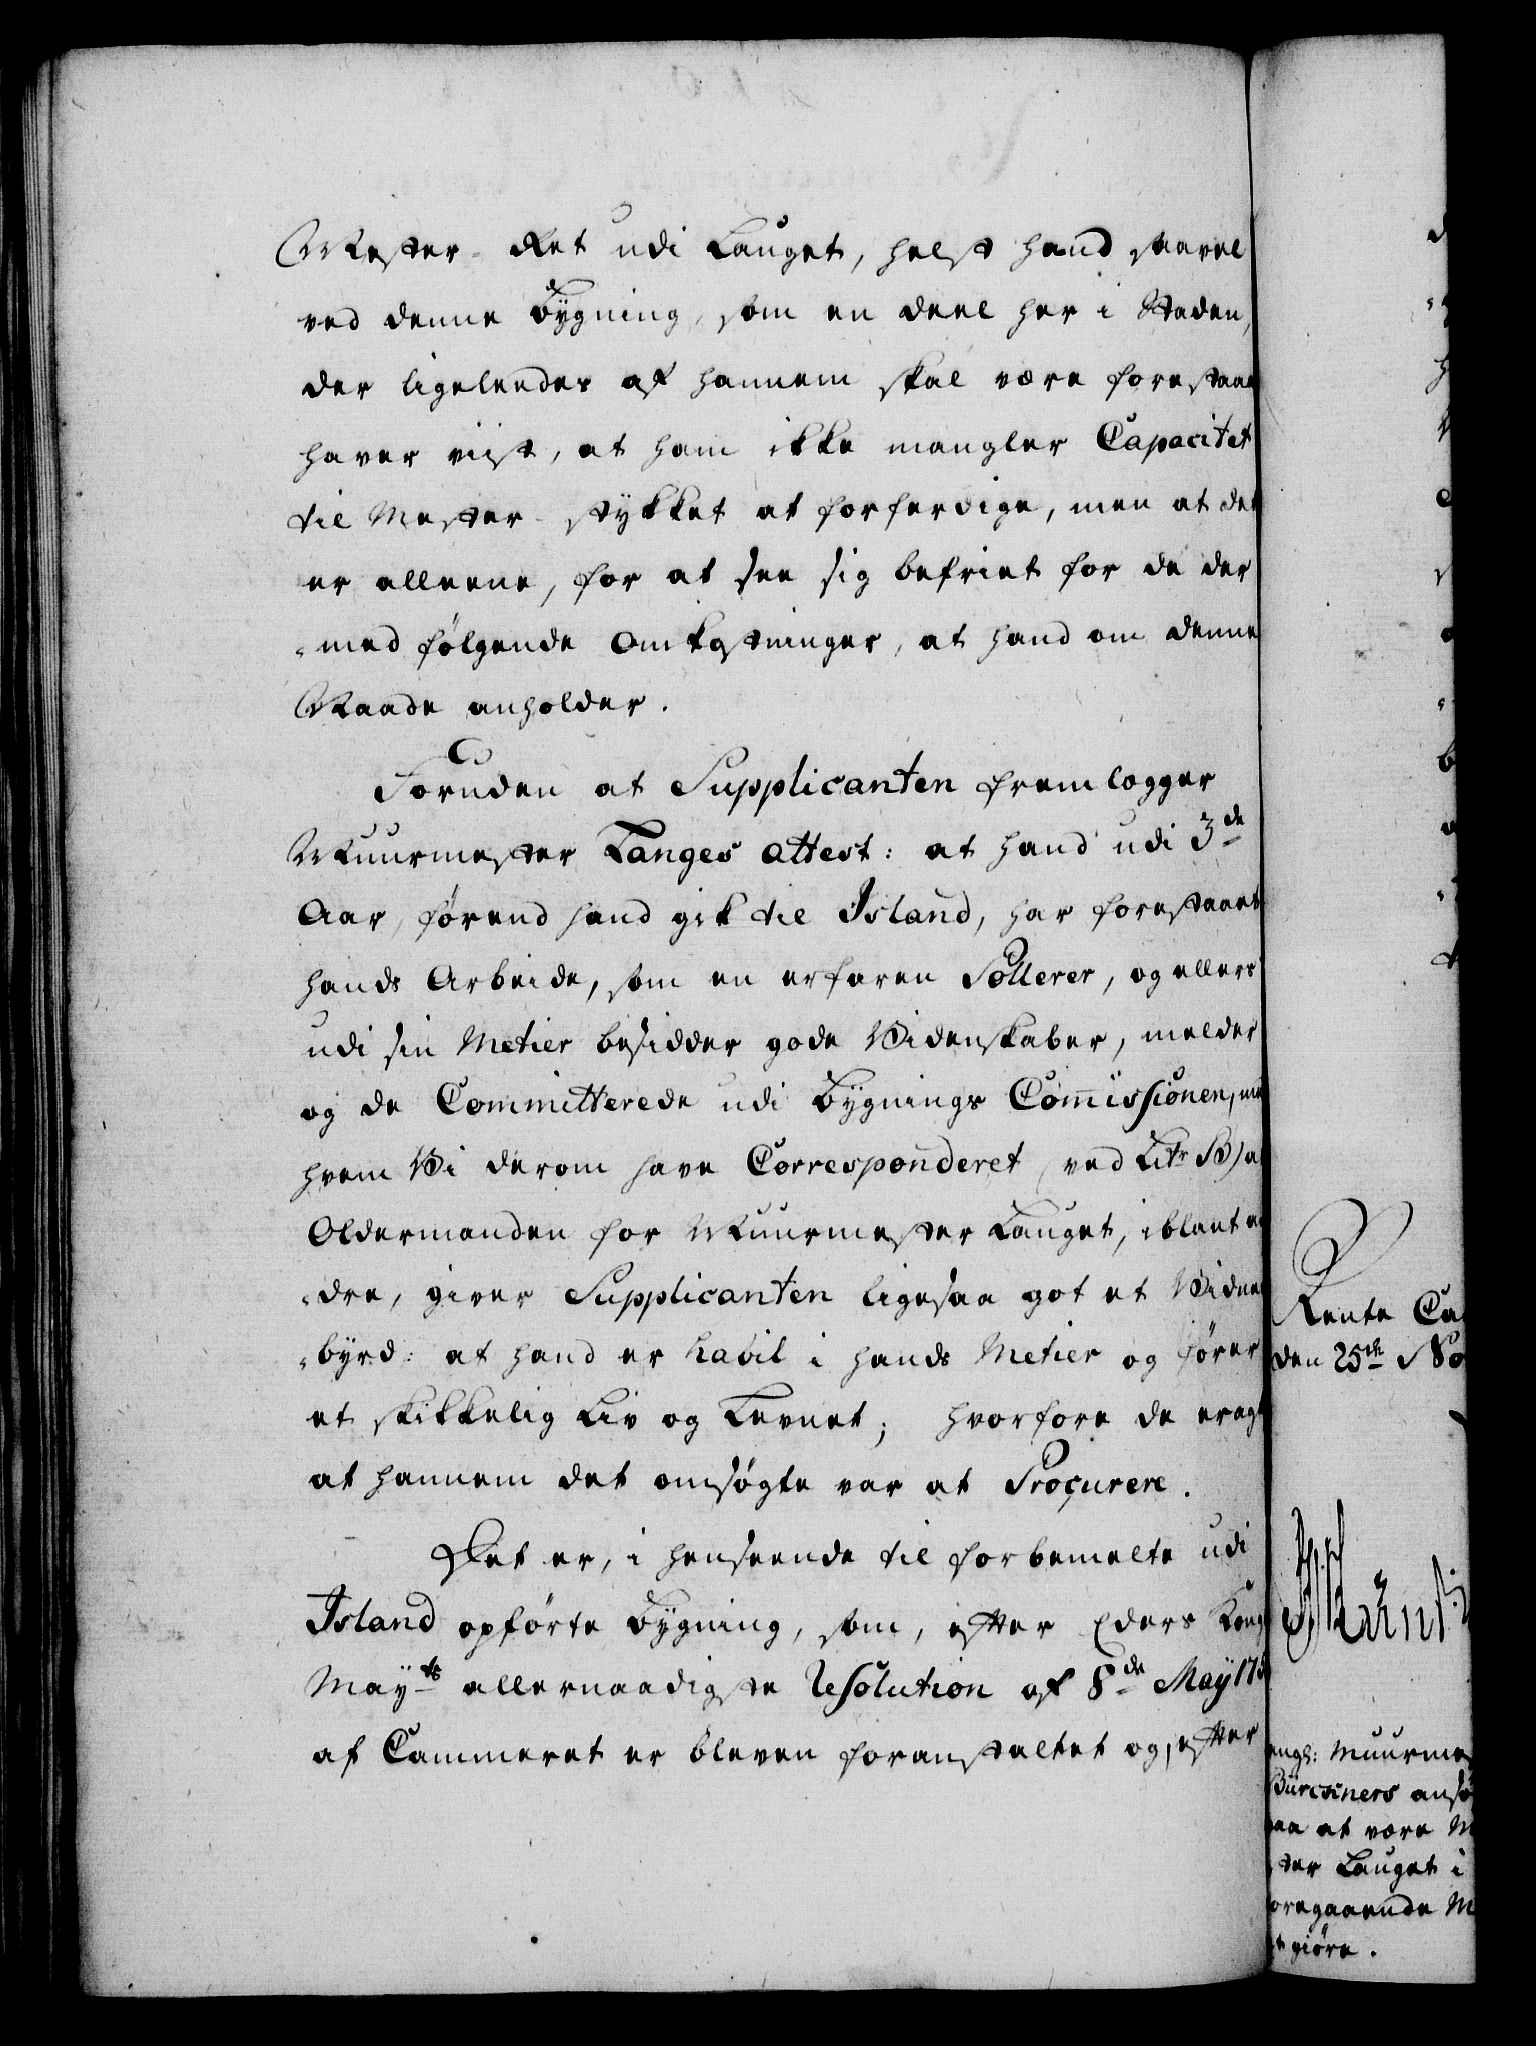 Mester-Ret udi Lauget, helst hand saavel
ved denne Bygning, som en deel her i Staden,
der ligeleedes af hannem skal være forestaae
haver viist, at ham ikke mangler Capacitet
til Mester-stykket at forferdige, men at det
er alleene, for at see sig befriet for de der
„med følgende Omkostninger, at hand om denne
Naade anholder.
Foruden at Supplicanten fremlegger
Muurmester Langes attest: at hand udi 3de
Aar, førend hand gik til Island, har forestaaet
hands Arbeide, som en erfaren Pollerer, og ellers
udi sin Metier besidder gode Videnskaber, melder
og de Committerede udi Bygnings Commissionen, med
hvem Vi derom have Corresponderet (ved Litr B) at
Oldermanden for Muurmester Lauget, iblant an
„dre, giver Supplicanten ligesaa got et Vidnes
„byrd: at hand er habil i hands Metier og fører
et skikkelig Liv og Levnet; hvorfore de eragt
at hannem det omsøgte var at Procurere.
Det er, i henseende til forbemelte udi
Island opførte Bygning, som, efter Eders Kong
Mayts allernaadigste Resolution af 8de May 17
af Cammeret er bleven foranstaltet og, efter
Rente Ca
den 25de No
angl: Muurmes
Bürcsners ansø
paa at være M
ter Lauget i
foregaaende M
at giøre.